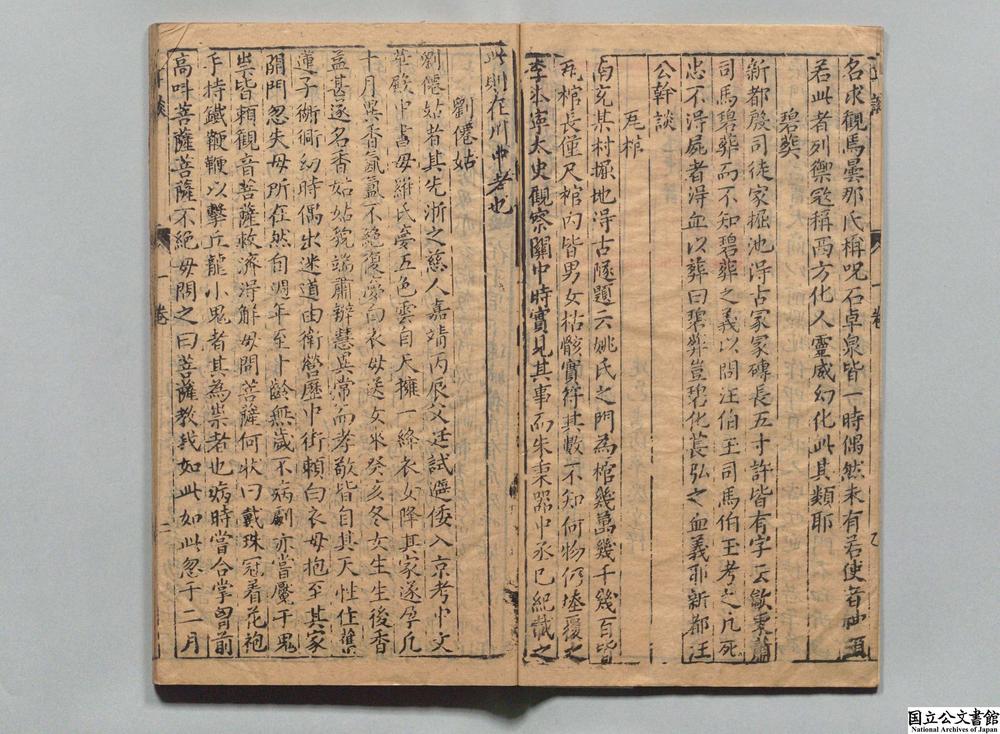 名求觀馬曇那氏稱呪石卓泉皆一時偶然未有若使者
若此者列禦寇稱西方化人靈威幻化此其類耶
碧葬
新都殷司徒家掘池淂古冢冢磚長五寸許皆有字云歙東蕭
司馬碧葬而不知碧葬之義以問汪伯玉司馬伯玉考之凡死
忠不淂屍者淂血以葬曰碧葬豈碧化萇弘之血義耶新都汪
公幹談
瓦棺
南充某村掘地淂古隧題云姚氏之門為棺幾萬幾千幾百皆
瓦棺長僅尺棺內皆男女枯骸實符其數不知何物仍塗覆之
李本寧太史觀察關中時實見其事而朱秉器中丞已紀載之
此則在川中者也
劉僊姑
劉僊姑者其先浙之慈人嘉靖丙辰父廷試避倭入京考中文
華殿中書母羅氏夢五色雲自天擁一絳衣女降其家遂孕凡
十月異香氤氳不絕復夢白衣母送女來癸亥冬女生生後香
益甚遂名香姑姑貌端肅辯慧異常而孝敬皆自其天性住舊
蓮子衚衕幼時偶出迷道由衛營歷中街賴白衣母抱至其家
閙門忽失母所在然自週年至十齡無歲不病劇亦嘗魘于鬼
祟皆賴觀音菩薩救濟淂解母問菩薩何狀曰戴珠冠着花袍
手持鐵鞭鞭以擊丘龍小鬼者其為祟者也病時當合掌胷前
高呌菩薩菩薩不絕母問之曰菩薩教我如此如此忽于二月
卷一
二
国立公文書館
National Archives of Japan